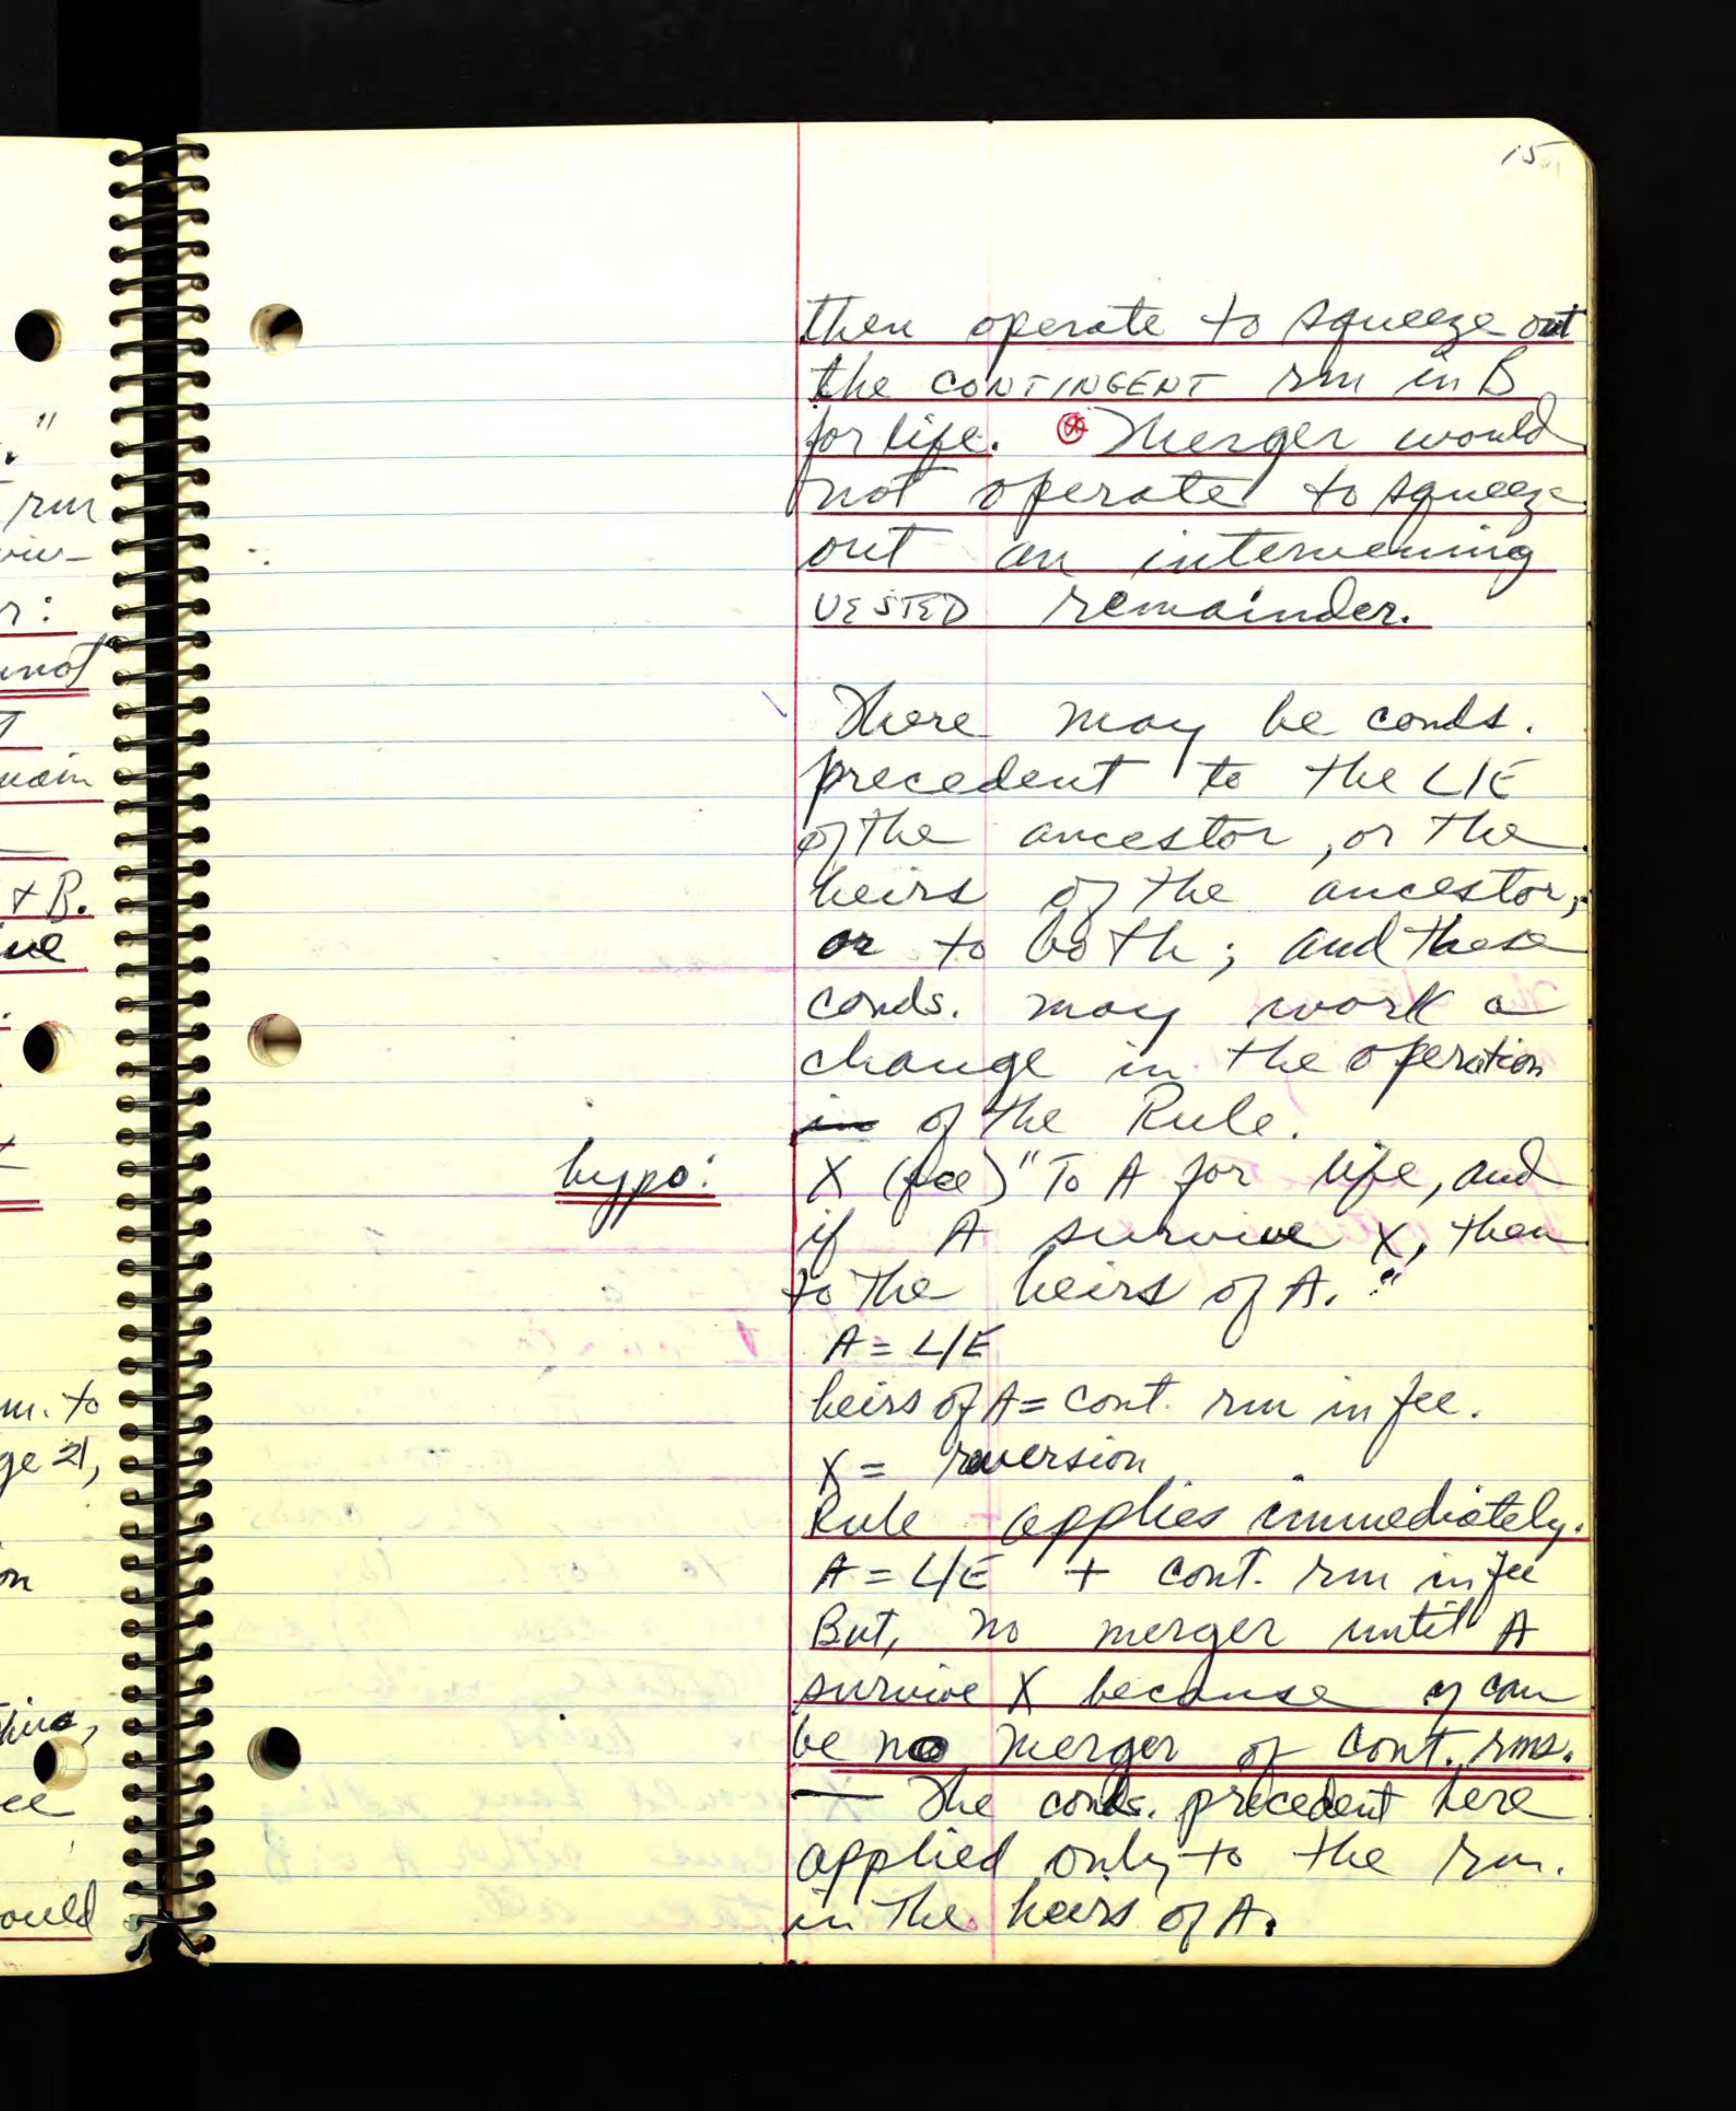 "
rm
r:
not
main
+ B.
ue
m. to
ge 21,
on
ould
15
then operate to squeeze out
the CONTINGENT rm in B
for life. Merger would
not operate to squeeze
out an intervening
VESTED remainder.
There may be conds.
precedent to the L/E
of the ancestor, or the
heirs of the ancestor,
or to both; and these
conds. may work a
change in the operation
in of the Rule.
hypo: X (fee) "To A for life, and
if A survive X, then
to the heirs of A."
A = L/E
heirs of A = cont. rm in fee.
X = reversion
Rule applies immediately.
A = L/E + cont. rm in fee
But, no merger until A
survive X because can
be no merger of cont. rms.
— The conds. precedent here
applied only to the rm.
in the heirs of A.